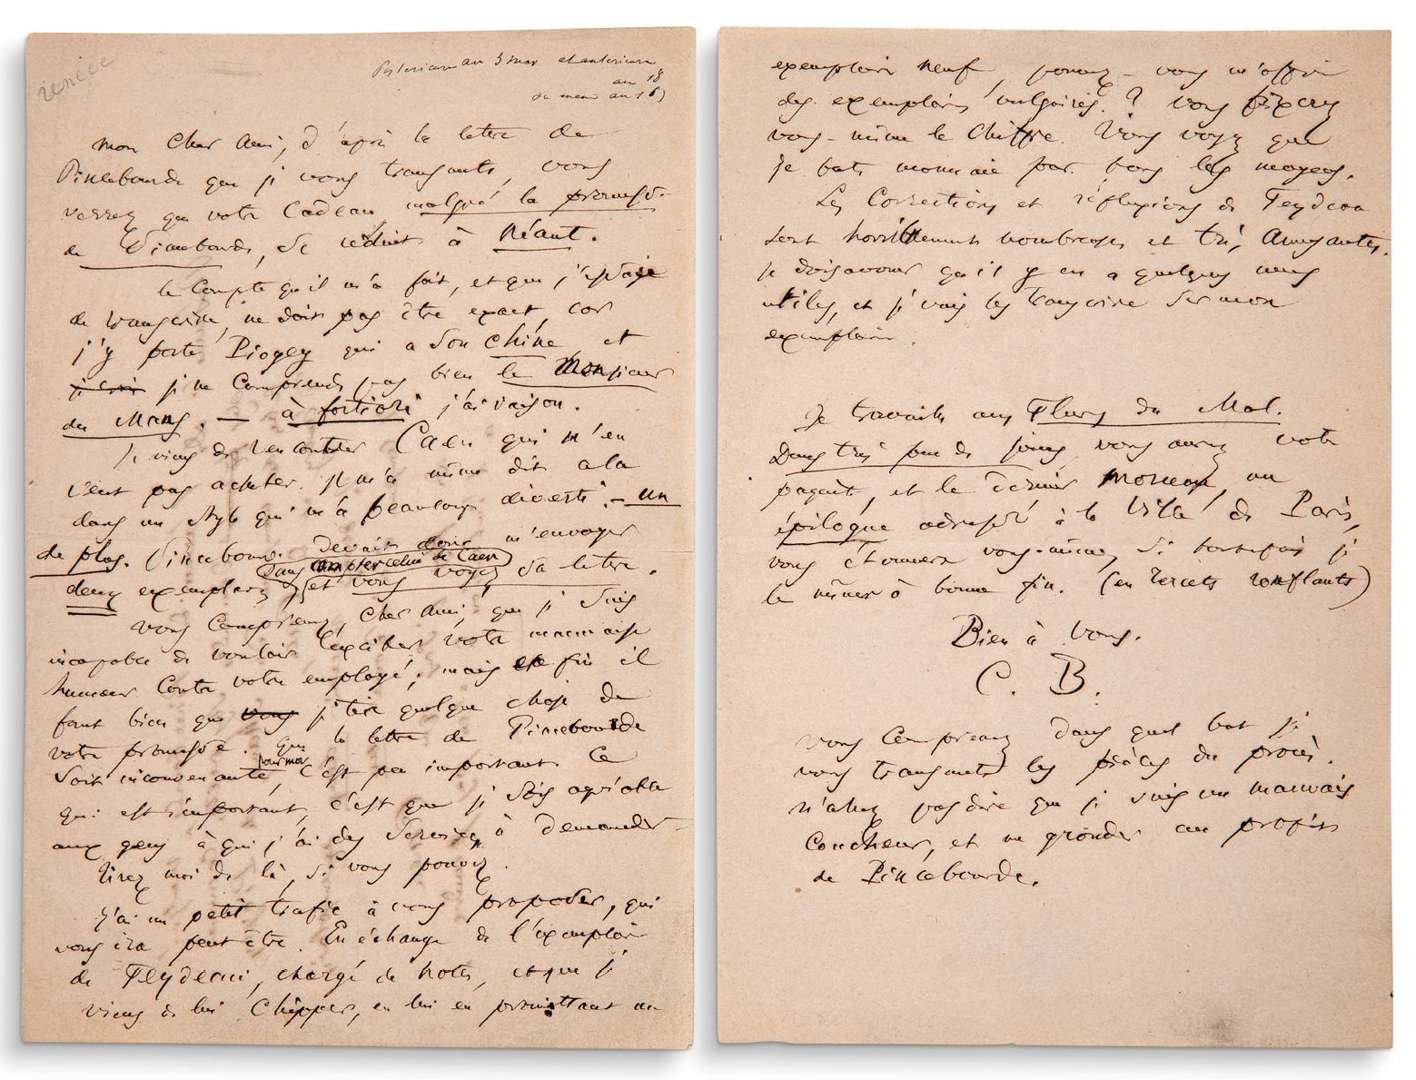 Postérieur au 3 mar et antérieur
au 18
mon cher ami, d'après la lettre de
Pincebourde que je vous transmets, vous
verrez que votre Cadeau, malgré la promesse
de Pincebourde, se réduit à Néant.
le Compte qu'il m'a fait, et que j'
de transcrire, ne doit pas être exact, car
j'y porte Piogey qui a son Chine et
je ne comprends pas bien le Monsieur
du Mans. — à fortiori j'ai raison.
Je viens de rencontrer Caen qui m'en
veut pas acheter. Il m'a même dit
dans un style qui m'a beaucoup diverti : — un
de plus. Pincebourde devait donc m'envoyer
deux exemplaires sans compter celui de Caen
et vous voyez sa lettre.
Vous comprenez, cher ami, que je suis
incapable de vouloir exciter votre mauvaise
humeur contre votre employé ; mais enfin il
faut bien que vous j'tire quelque chose de
votre promesse. Que la lettre de Pincebourde
soit inconvenante, pour moi, c'est peu important. Ce
qui est important, c'est que je sois agréable
aux gens à qui j'ai des services à demander.
Tirez moi de là, si vous pouvez.
J'ai un petit trafic à vous proposer, qui
vous ira peut être. En échange de l'exemplaire
de Feydeau, chargé de notes, et que je
viens de lui Chipper, en lui en promettant un
exemplaire neuf, pouvez-vous m'offrir
des exemplaires vulgaires ? Vous fixerez
vous-même le Chiffre. Vous voyez que
je bats monnaie par tous les moyens.
Les Corrections et réflexions de Feydeau
sont horriblement nombreuses et très amusantes.
Je dois avouer qu'il y en a quelques unes
utiles, et je vais les transcrire sur mon
exemplaire.
Je travaille aux Fleurs du Mal.
Dans très peu de jours, vous aurez votre
paquet, et le dernier morceau, ou
épilogue adressé à la Ville de Paris,
vous étonnera vous-même, si toutefois je
le mène à bonne fin. (en Tercets ronflants)
Bien à vous.
C. B.
Vous comprenez dans quel but je
vous transmets les pièces du procès.
N'allez pas dire que je suis un mauvais
Coucheur, et me gronder au profit
de Pincebourde.